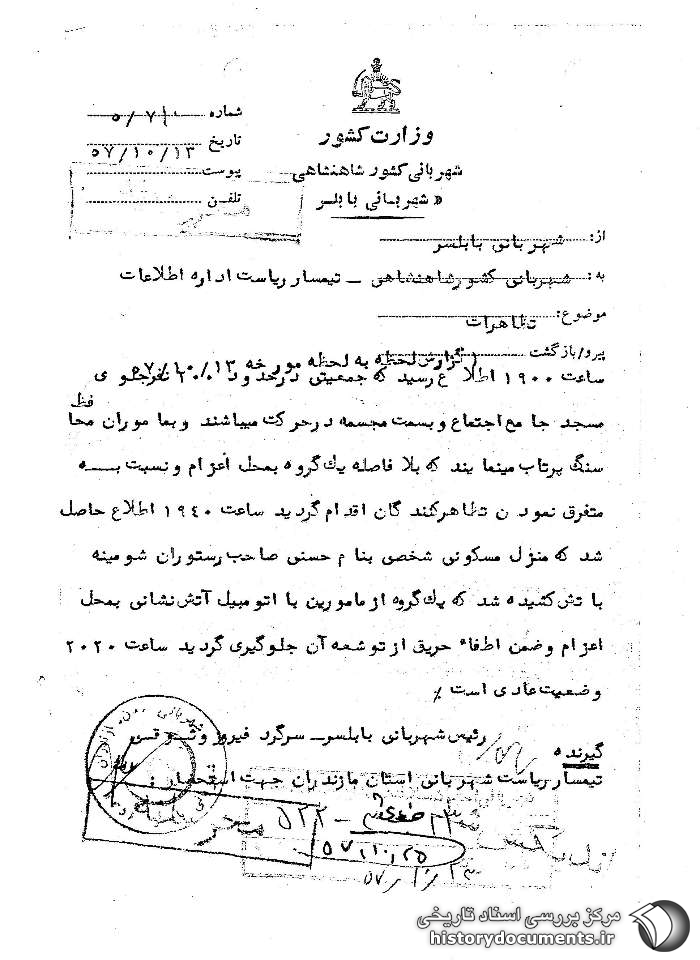 شماره ۵/۷۱۰
وزارت کشور
تاریخ ۵۷/۱۰/۱۳
شهربانی کشور شاهنشاهی
پیوست
« شهربانی بابلسر
تلفن
از: شهربانی بابلسر
به: شهربانی کشور شاهنشاهی ــ تیمسار ریاست اداره اطلاعات
موضوع: تظاهرات
پیرو/بازگشت (گزارش لحظه به لحظه مورخه ۵۷/۱۰/۱۳
ساعت ۱۹۰۰ اطلاع رسید که جمعیتی در حدود ۲۰۰ نفر جلوی
مسجد جامع اجتماع و بسمت مجسمه در حرکت میباشند و بمأموران محافظ
سنگ پرتاب مینمایند که بلافاصله یک گروه بمحل اعزام و نسبت به
متفرق نمودن تظاهرکنندگان اقدام گردید ساعت ۱۹۴۰ اطلاع حاصل
شد که منزل مسکونی شخصی بنام حسنی صاحب رستوران شومینه
باتش کشیده شد که یک گروه از مامورین با اتومبیل آتش نشانی بمحل
اعزام و ضمن اطفاء حریق از توشعه آن جلوگیری گردید ساعت ۲۰۲۰
وضعیت عادی است ٪
رئیس شهربانی بابلسر ــ سرگرد فیروز وثوقی
گیرنده
تیمسار ریاست شهربانی استان مازندران جهت استحضار :
۵۲۲
۵۷/۱۰/۲۵
مرکز بررسی اسناد تاریخی
historydocuments.ir